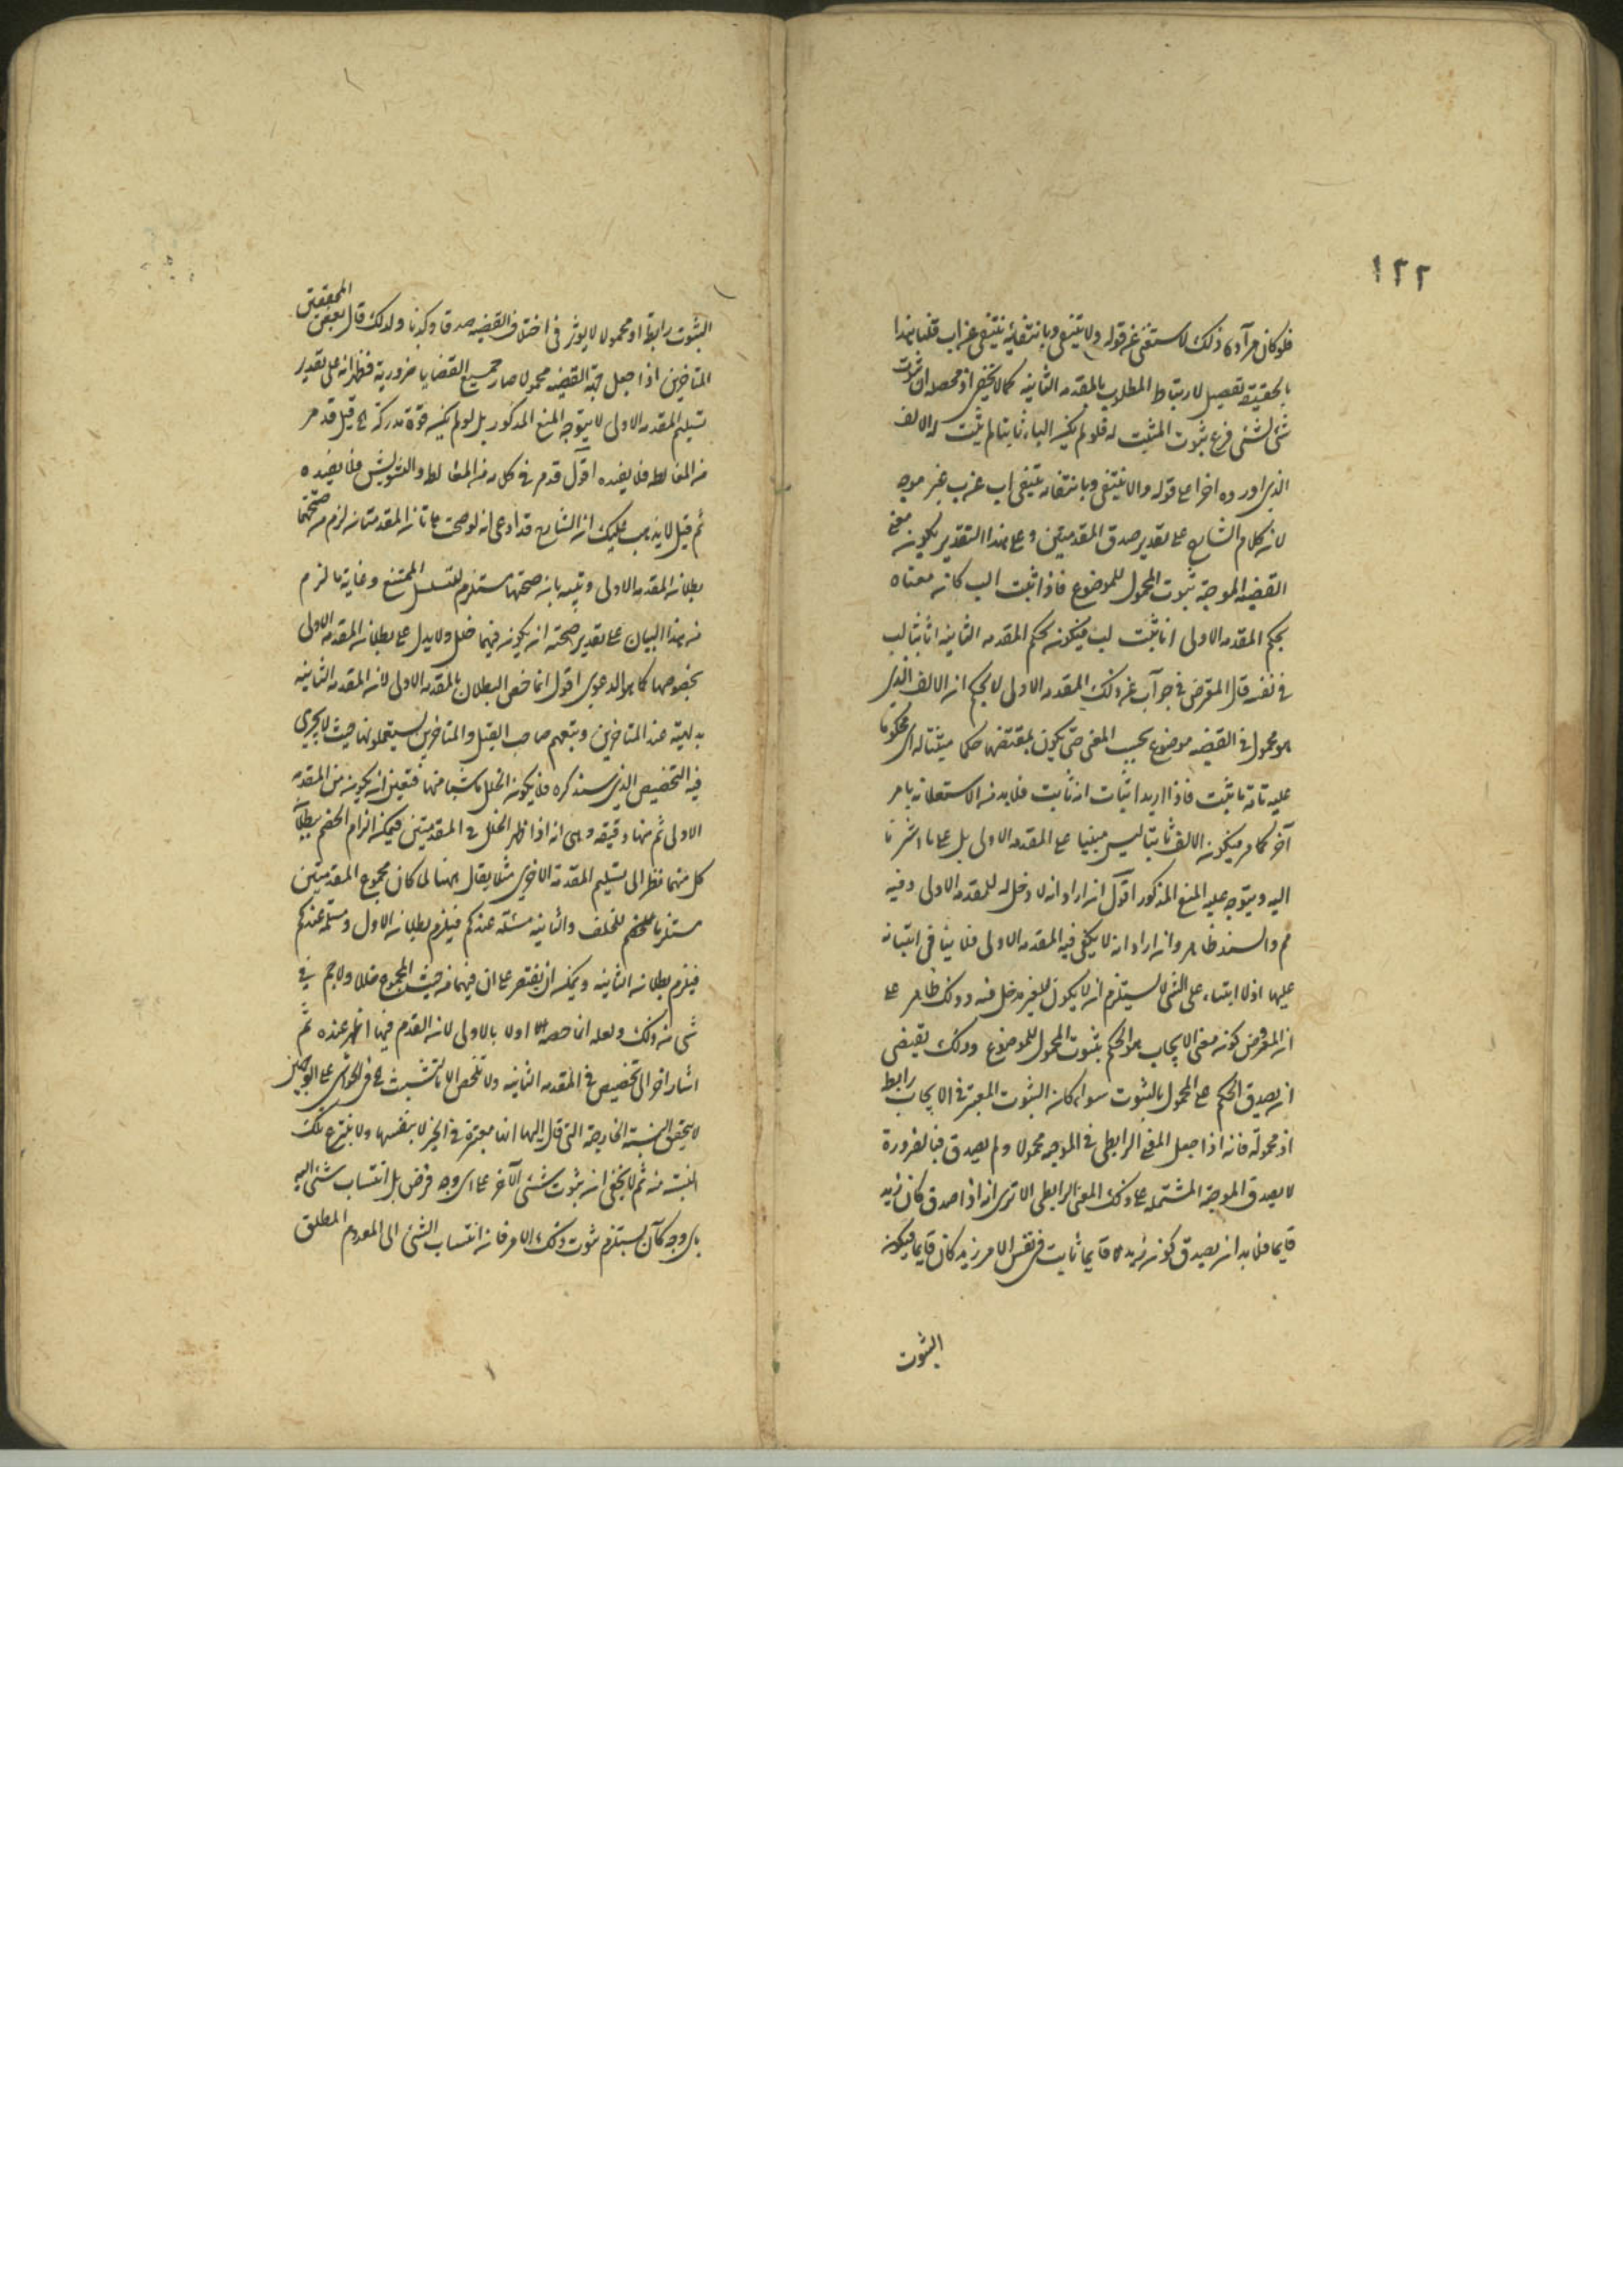 ١٢٢
فلو كان مرآده ذلك لاستغنى عن قوله ولا ينتفي وبانتفائه ينتفي عن اب قلنا هذا
بالحقيقة تفصيل لارتباط المطلوب بالمقدمه الثانيه كما لا يخفى اذ محصله ان ثبوت
شئ لشئ فرع ثبوت المثبت له فلو لم يكن الباء ثابتا لم يثبت له الالف
الذي اورده اخرا على قوله والا ينتفي وبانتفائه ينتفي اب عن ب غير موجه
لان كلام الشارح على تقدير صدق المقدمتين وعلى هذا التقدير يكون معنى
القضيه الموجبة ثبوت المحمول للموضوع فاذا ثبت الب كان معناه
بحكم المقدمه الاولى ا ثابت لب فيكون بحكم المقدمه الثانيه ا ثابتا لب
في نفسه قال المعترض في جوآب عن ذلك المقدمه الاولى لا يحكم ان الالف الذي
هو محمول في القضيه موضوع بحسب المعنى حتى يكون بمقتضاها حكما مثبتا له اى محكوما
عليه بانه ثابت فاذا اريد اثبات انه ثابت فلا بد من الاستعانه بامر
آخر كما مر فيكون الالف ثابتا ليس مبنيا على المقدمه الاولى بل على ما اشرنا
اليه ويتوجه عليه المنع المذكور اقول ان اراد انه لا دخل له للمقدمه الاولى وفيه
مم والسند ظاهر وان اراد انه لا يكفي فيه المقدمه الاولى فلا ينافي ابتناءه
عليها اذ لا ابتناء على الشئ لا يستلزم ان لا يكون للغير مدخل فيه وذلك ظاهر على
ان المفروض كون معنى الايجاب هو الحكم بثبوت المحمول للموضوع وذلك يقتضي
ان يصدق الحكم على المحمول بالثبوت سواء كان الثبوت المعتبر في الايجاب رابط
او محمولة فانه اذا جعل المعنى الرابطي في الموجبه محمولا ولم يصدق فبالضرورة
لا يصدق الموجبة المشتمله على ذلك المعنى الرابطي الا ترى انه اذا صدق كان زيد
قايما فلا بد ان يصدق كون زيد قايما ثابت في نفس الامر زيد كان قايما فيكون
الثبوت
الثبوت رابطا او محمولا لا يوثر في اختلاف القضيه صدقا وكذبا ولذلك قال بعض المحققين
المتاخرين اذا جعل جهة القضيه محمولا صار جميع القضايا ضرورية فظهر انه على تقدير
تسليم المقدمه الاولى لا يتوجه المنع المذكور بل لو لم يكن قوة مدركة قيل قد مر
من المغالطه فلا يفيده اقول قد مر في كلامه من المغالطه والتشويش فلا يفيده
ثم قيل لا يذهب عليك ان الشارح قد ادعى انه لو صحت هاتان المقدمتان لزم من صحتهما
بطلان المقدمه الاولى وبينه بان صحتهما مستلزم للتسلسل الممتنع وغاية ما لزم
من هذا البيان على تقدير صحته ان يكون فيهما خلل ولا يدل على بطلان المقدمه الاولى
بخصوصها كما هو الدعوى اقول انما خص البطلان بالمقدمه الاولى لان المقدمه الثانيه
بديهية عند المتاخرين وتبعهم صاحب القيل والمتاخرين يستعملونها حيث لا يجري
فيه التخصيص الذي سنذكره فلا يكون الخلل ناشيا منها فتعين ان يكون من المقدمه
الاولى ثم هنا دقيقه وهي انه اذا ظهر الخلل في المقدمتين فيمكن الزام الخصم ببطلان
كل منهما نظرا الى تسليم المقدمة الاخرى مثلا يقال ههنا لما كان مجموع المقدمتين
مستلزما للخلف والثانيه مسلمه عندكم فيلزم بطلان الاول ومسلمة عندكم
فيلزم بطلان الثانيه ويمكن ان يقتصر على ان فيهما من حيث المجموع خللا ولا جرم في
شئ من ذلك ولعله انما خصه اولا بالاولى لان القدم فيها اظهر عنده ثم
اشار اخرا الى تخصيص في المقدمه الثانيه ولا تلخص الا بالتشبث في الحواشي على الوجهين
لا يتحقق النسبة الخارجية التي قال اليها انها معتبرة في الخبر لا بنفسها ولا بمنتزع تلك
النسبة منه ثم لا يخفى ان ثبوت شئ لآخر على اى وجه فرض بل انتساب شئ اليه
باى وجه كان يستلزم ثبوت ذلك الامر فان انتساب الشئ الى المعدوم المطلق